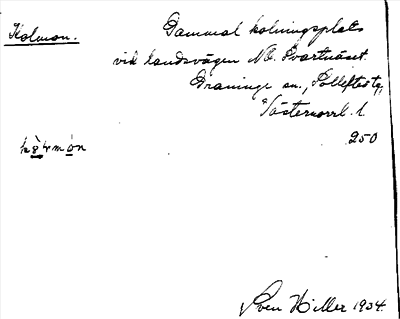 Kolmon.
Gammal kolningsplats
vid landsvägen N.O. Svartnäset.
Graninge sn., Sollefteå tg,
Västernorrl. l.
250
Sven Hiller 1934.